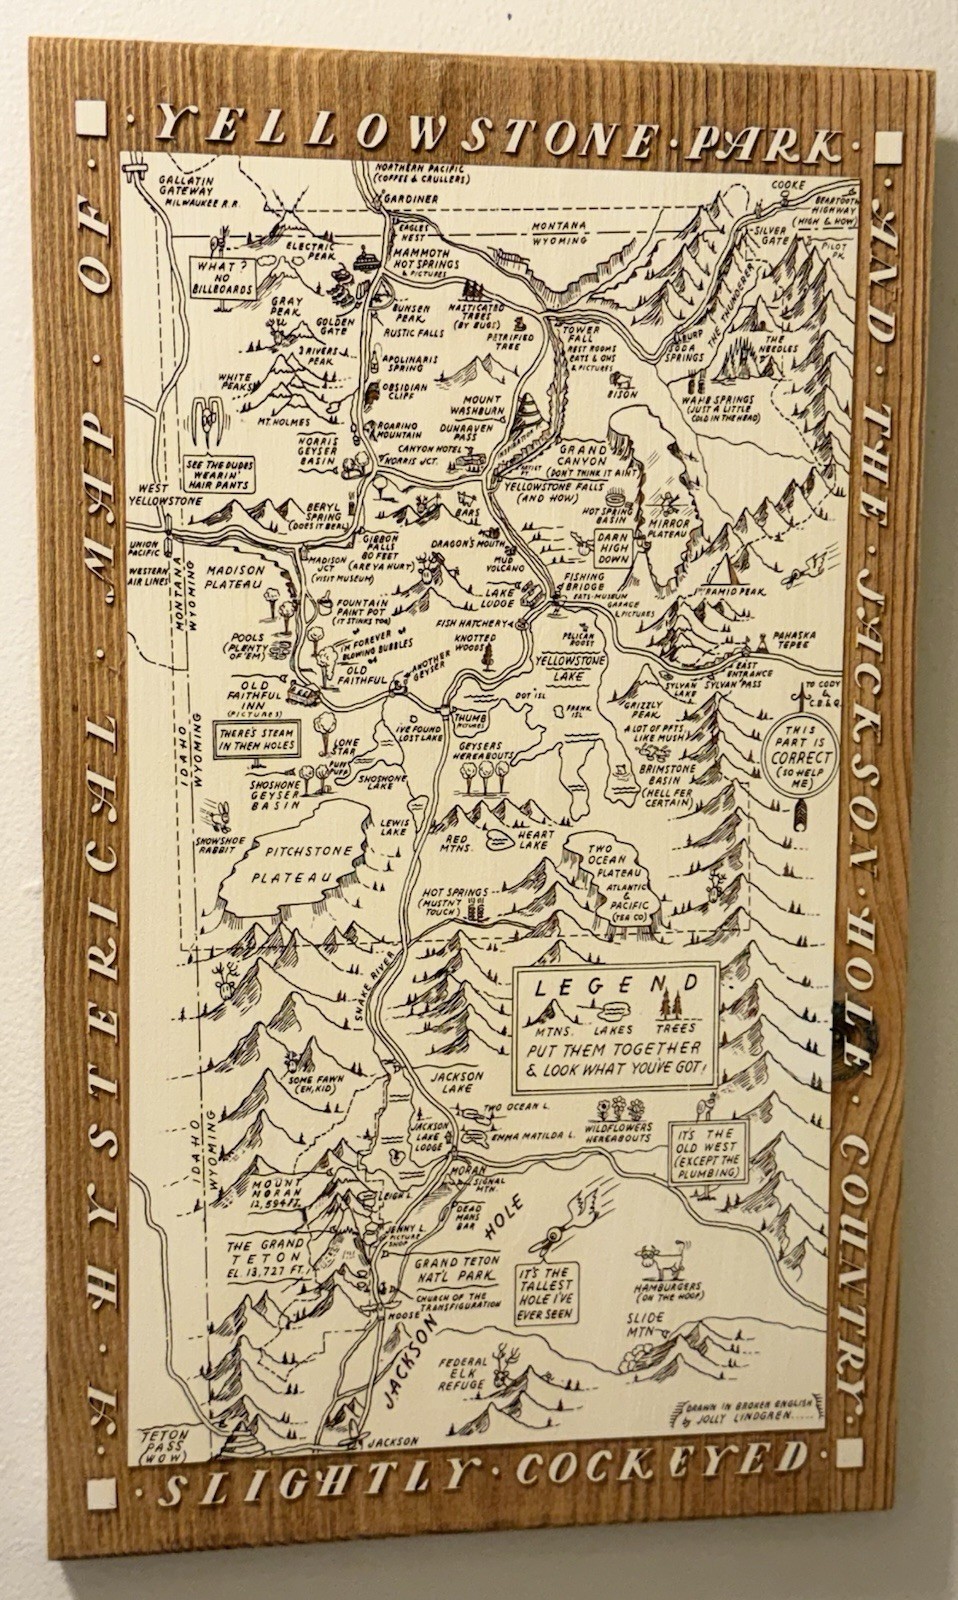 A · HYSTERICAL · MAP · OF ·
· YELLOWSTONE · PARK ·
· AND · THE · JACKSON · HOLE · COUNTRY ·
· SLIGHTLY · COCKEYED ·
GALLATIN
GATEWAY
MILWAUKEE R.R.
NORTHERN PACIFIC
(COFFEE & CRULLERS)
GARDINER
COOKE
BEARTOOTH
HIGHWAY
(HIGH & HOW)
MONTANA
WYOMING
EAGLES
NEST
SILVER
GATE
PILOT
PK.
ELECTRIC
PEAK
MAMMOTH
HOT SPRINGS
& PICTURES
WHAT?
NO
BILLBOARDS
GRAY
PEAK
GOLDEN
GATE
BUNSEN
PEAK
MASTICATED
TREES
(BY BUGS)
RUSTIC FALLS
PETRIFIED
TREE
TOWER
FALL
REST ROOMS
EATS & OHS
& PICTURES
SODA
SPRINGS
THE THUNDERER
THE
NEEDLES
3 RIVERS
PEAK
APOLINARIS
SPRING
WHITE
PEAKS
OBSIDIAN
CLIFF
BISON
WAHB SPRINGS
(JUST A LITTLE
COLD IN THE HEAD)
MOUNT
WASHBURN
MT. HOLMES
ROARING
MOUNTAIN
DUNRAVEN
PASS
NORRIS
GEYSER
BASIN
CANYON HOTEL
NORRIS JCT.
GRAND
CANYON
(DON'T THINK IT AINT)
SEE THE DUDES
WEARIN'
HAIR PANTS
YELLOWSTONE FALLS
(AND HOW)
WEST
YELLOWSTONE
BERYL
SPRING
(DOES IT BERL)
BARS
HOT SPRING
BASIN
MIRROR
PLATEAU
UNION
PACIFIC
WESTERN
AIR LINES
GIBBON
FALLS
80 FEET
(ARE YA HURT)
DRAGON'S MOUTH
MUD
VOLCANO
DARN
HIGH
DOWN
MADISON
JCT
(VISIT MUSEUM)
MADISON
PLATEAU
MONTANA
WYOMING
LAKE
LODGE
FISHING
BRIDGE
EATS-MUSEUM
GARAGE
& PICTURES
PYRAMID PEAK
FOUNTAIN
PAINT POT
(IT STINKS TOO)
FISH HATCHERY
POOLS
(PLENTY
OF 'EM)
I'M FOREVER
BLOWING BUBBLES
KNOTTED
WOODS
PELICAN
ROOST
PAHASKA
TEPEE
OLD
FAITHFUL
ANOTHER
GEYSER
YELLOWSTONE
LAKE
EAST
ENTRANCE
SYLVAN
LAKE
SYLVAN PASS
OLD
FAITHFUL
INN
(PICTURES)
DOT ISL
FRANK
ISL
GRIZZLY
PEAK
TO CODY
&
C.B.& Q.
THERE'S STEAM
IN THEM HOLES
I'VE FOUND
LOST LAKE
THUMB
PICTURES
A LOT OF PPTS
LIKE MUSH
THIS
PART IS
CORRECT
(SO HELP
ME)
IDAHO
WYOMING
LONE
STAR
PUFF
PUFF
GEYSERS
HEREABOUTS
BRIMSTONE
BASIN
(HELL FER
CERTAIN)
SHOSHONE
GEYSER
BASIN
SHOSHONE
LAKE
SNOWSHOE
RABBIT
LEWIS
LAKE
RED
MTNS.
HEART
LAKE
PITCHSTONE
PLATEAU
TWO
OCEAN
PLATEAU
ATLANTIC
&
PACIFIC
(TEA CO)
HOT SPRINGS
(MUSTN'T
TOUCH)
SNAKE RIVER
LEGEND
MTNS. LAKES TREES
PUT THEM TOGETHER
& LOOK WHAT YOU'VE GOT!
SOME FAWN
(EH, KID)
JACKSON
LAKE
IDAHO
WYOMING
TWO OCEAN L.
JACKSON
LAKE
LODGE
EMMA MATILDA L.
WILDFLOWERS
HEREABOUTS
IT'S THE
OLD WEST
(EXCEPT THE
PLUMBING)
MORAN
SIGNAL
MTN.
MOUNT
MORAN
12,594 FT.
LEIGH L.
DEAD
MANS
BAR
JENNY L.
PICTURE
SHOP
THE GRAND
TETON
EL. 13,727 FT.!
GRAND TETON
NAT'L PARK
IT'S THE
TALLEST
HOLE I'VE
EVER SEEN
HAMBURGERS
(ON THE HOOF)
CHURCH OF THE
TRANSFIGURATION
MOOSE
SLIDE
MTN
JACKSON HOLE
FEDERAL
ELK
REFUGE
DRAWN IN BROKEN ENGLISH
by JOLLY LINDGREN.....
TETON
PASS
(WOW)
JACKSON